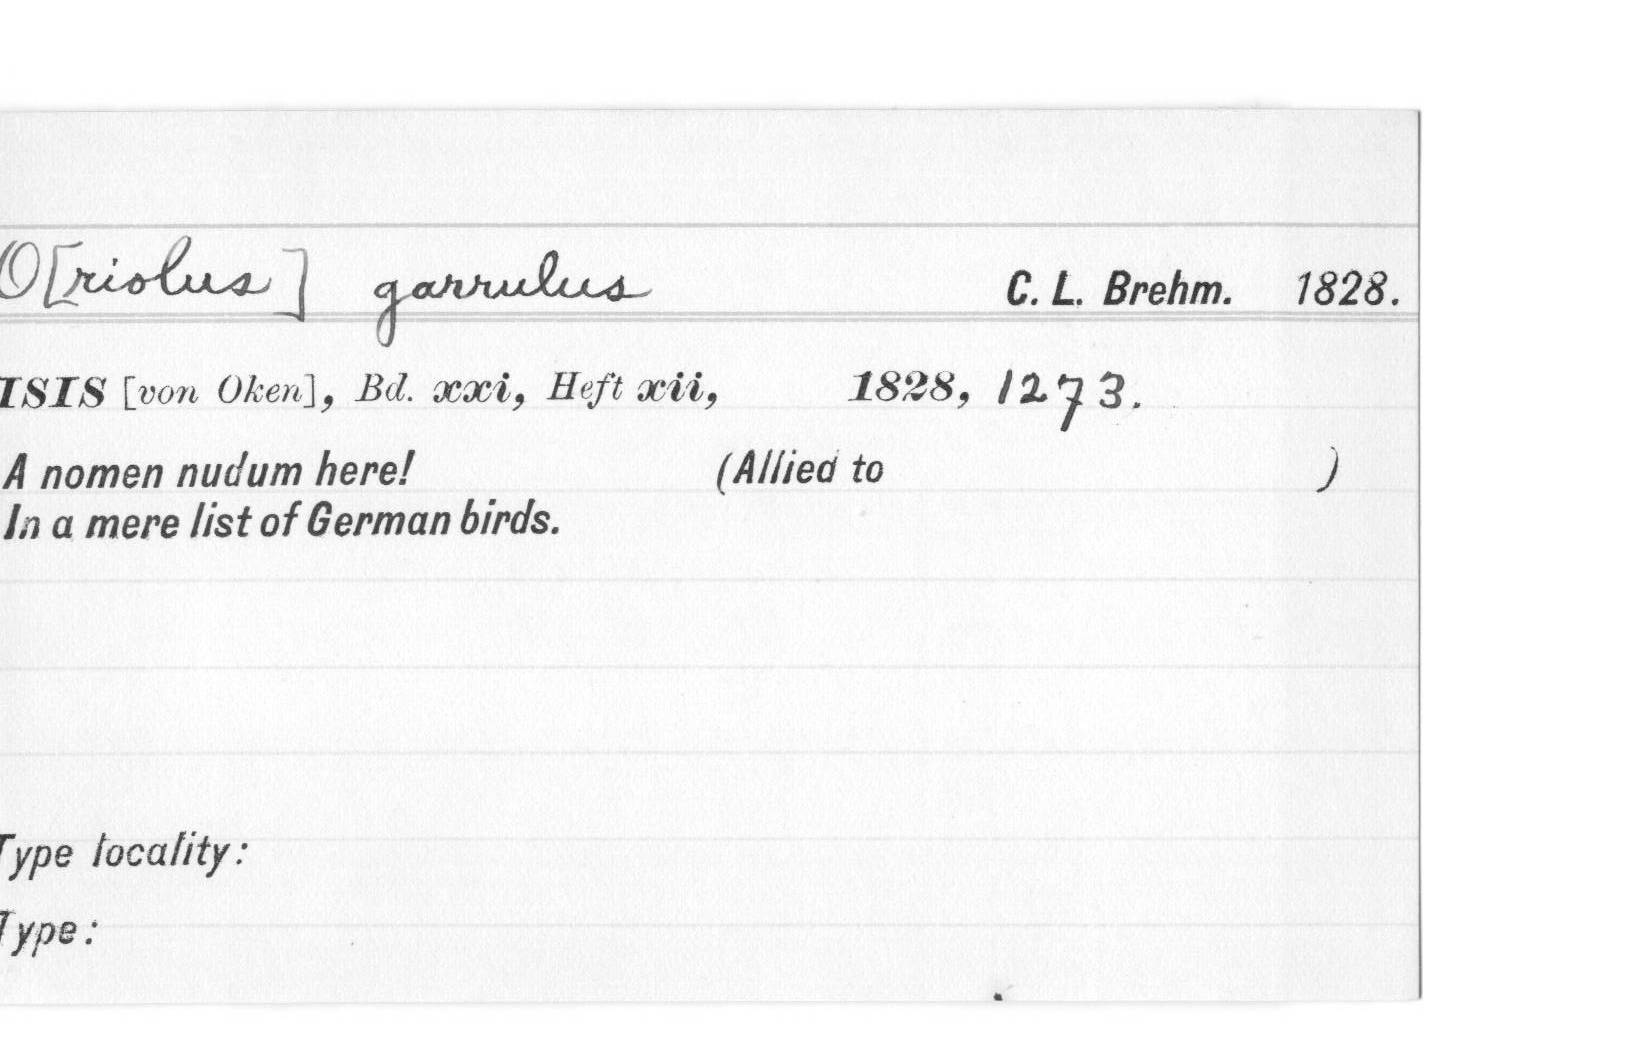 O[riolus] garrulus C. L. Brehm. 1828.
ISIS [von Oken], Bd. xxi, Heft xii, 1828, 1273.
A nomen nudum here! (Allied to )
In a mere list of German birds.
Type locality:
Type: